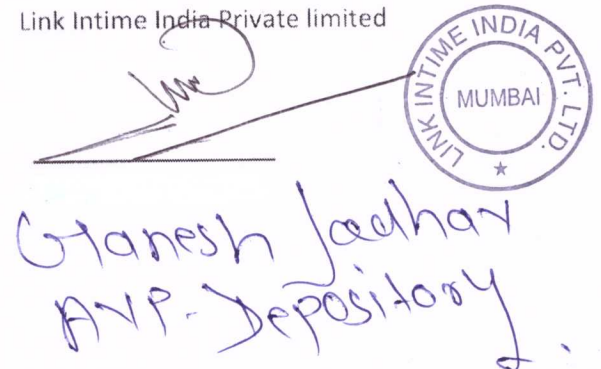 Link Intime India Private limited
LINK INTIME INDIA PVT. LTD.
MUMBAI
Ganesh Jadhav
AVP-Depository